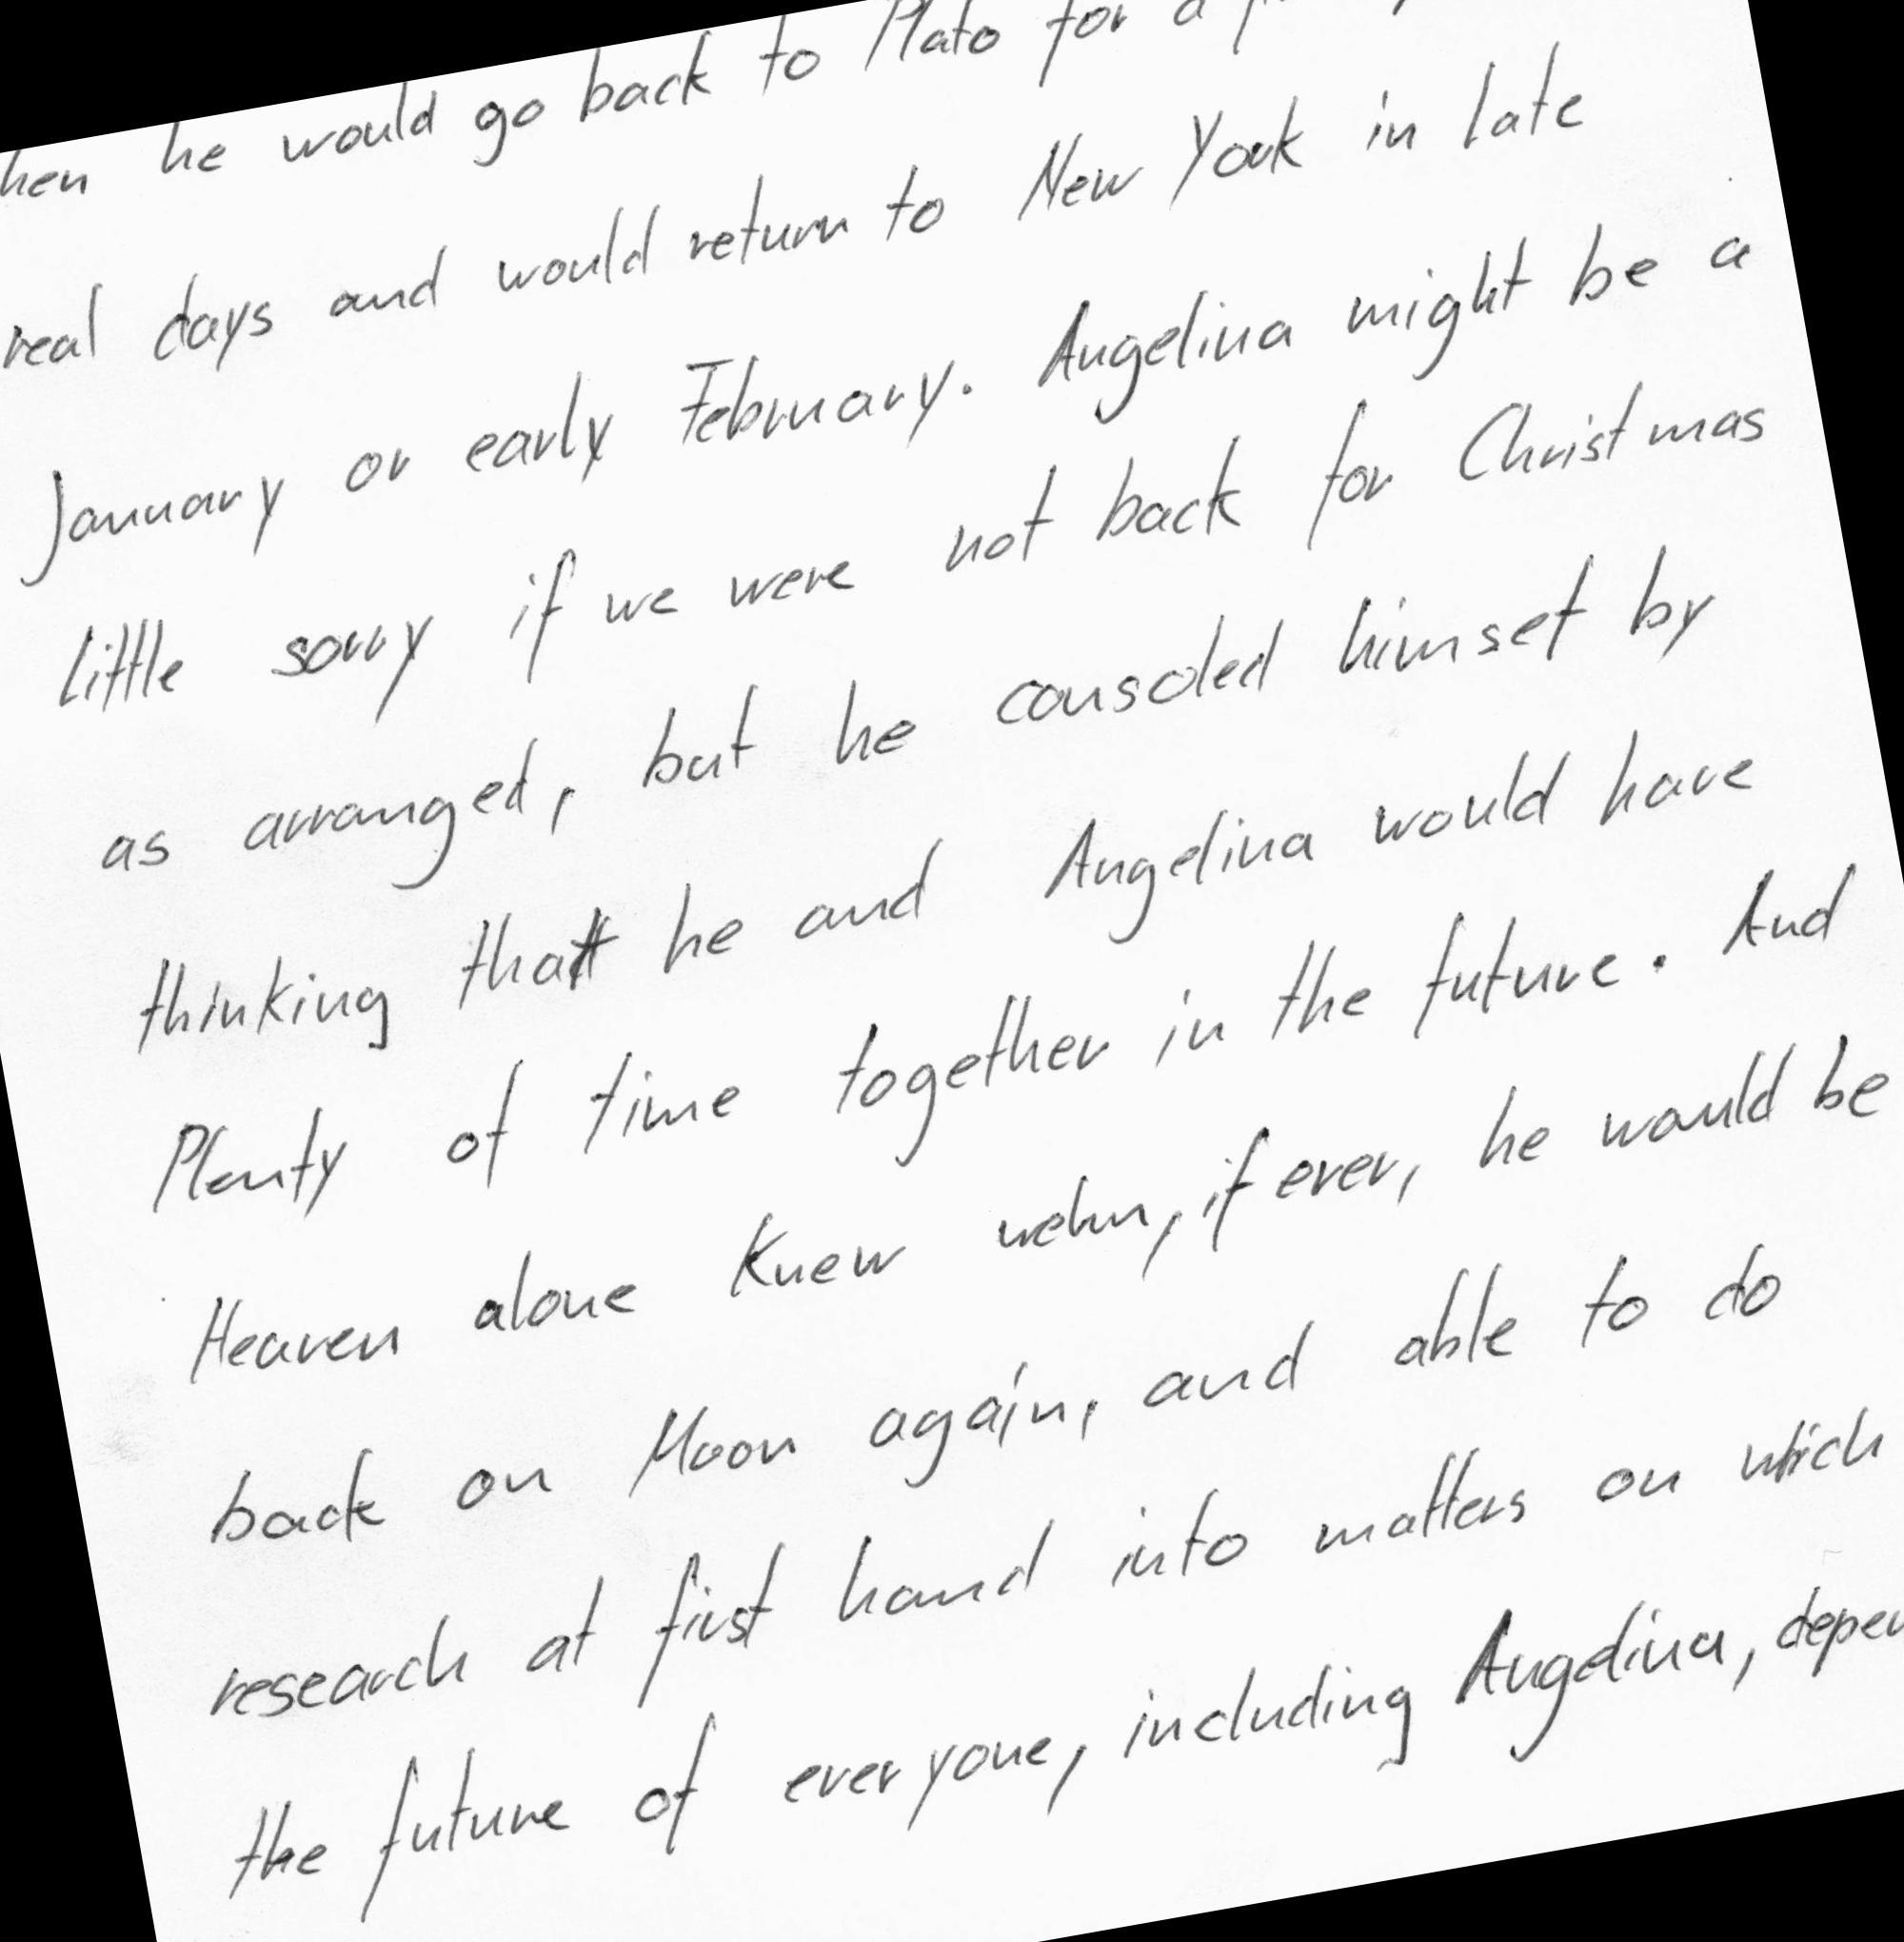 hen he would go back to Plato for a
real days and would return to New York in late
January or early February. Angelina might be a
little sorry if we were not back for Christmas
as arranged, but he consoled himset by
thinking that he and Angelina would have
Plenty of time together in the future. And
Heaven alone knew wehn, if ever, he would be
back on Moon again, and able to do
research at first hand into matters on which
the future of everyone, including Angelina, depen